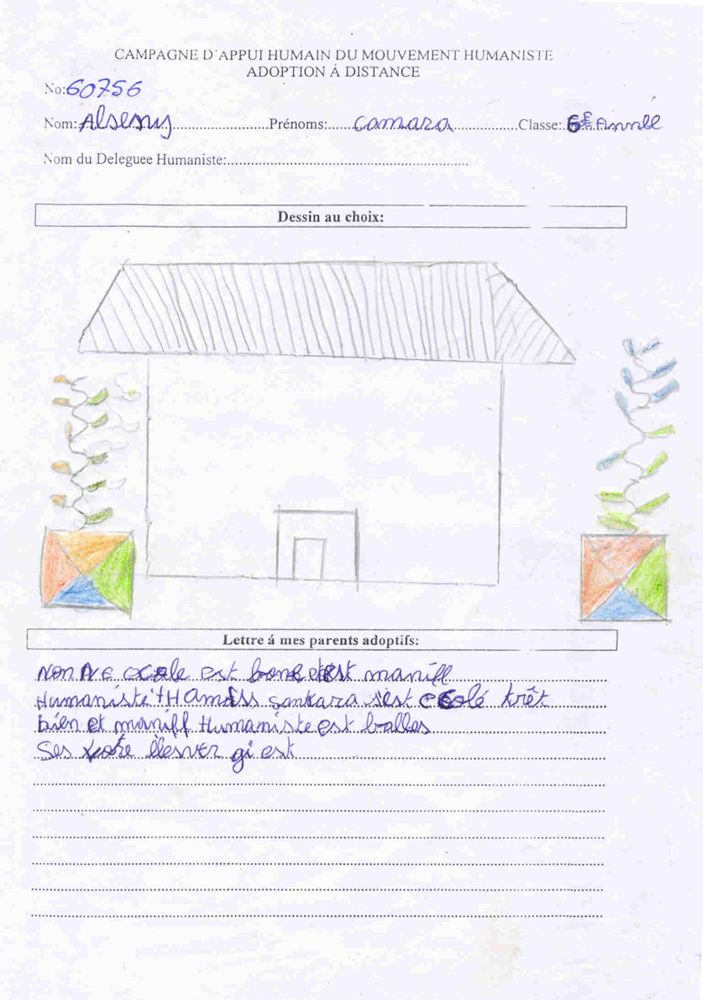 CAMPAGNE D'APPUI HUMAIN DU MOUVEMENT HUMANISTE
ADOPTION Á DISTANCE
No:60756
Nom: Alseny Prénoms: Camara Classe: 6e Année
Nom du Deleguee Humaniste:
Dessin au choix:
Lettre á mes parents adoptifs:
est bone maniff
Humaniste sankara sest trèt
bien et maniff Humaniste est balles
Ses gi est